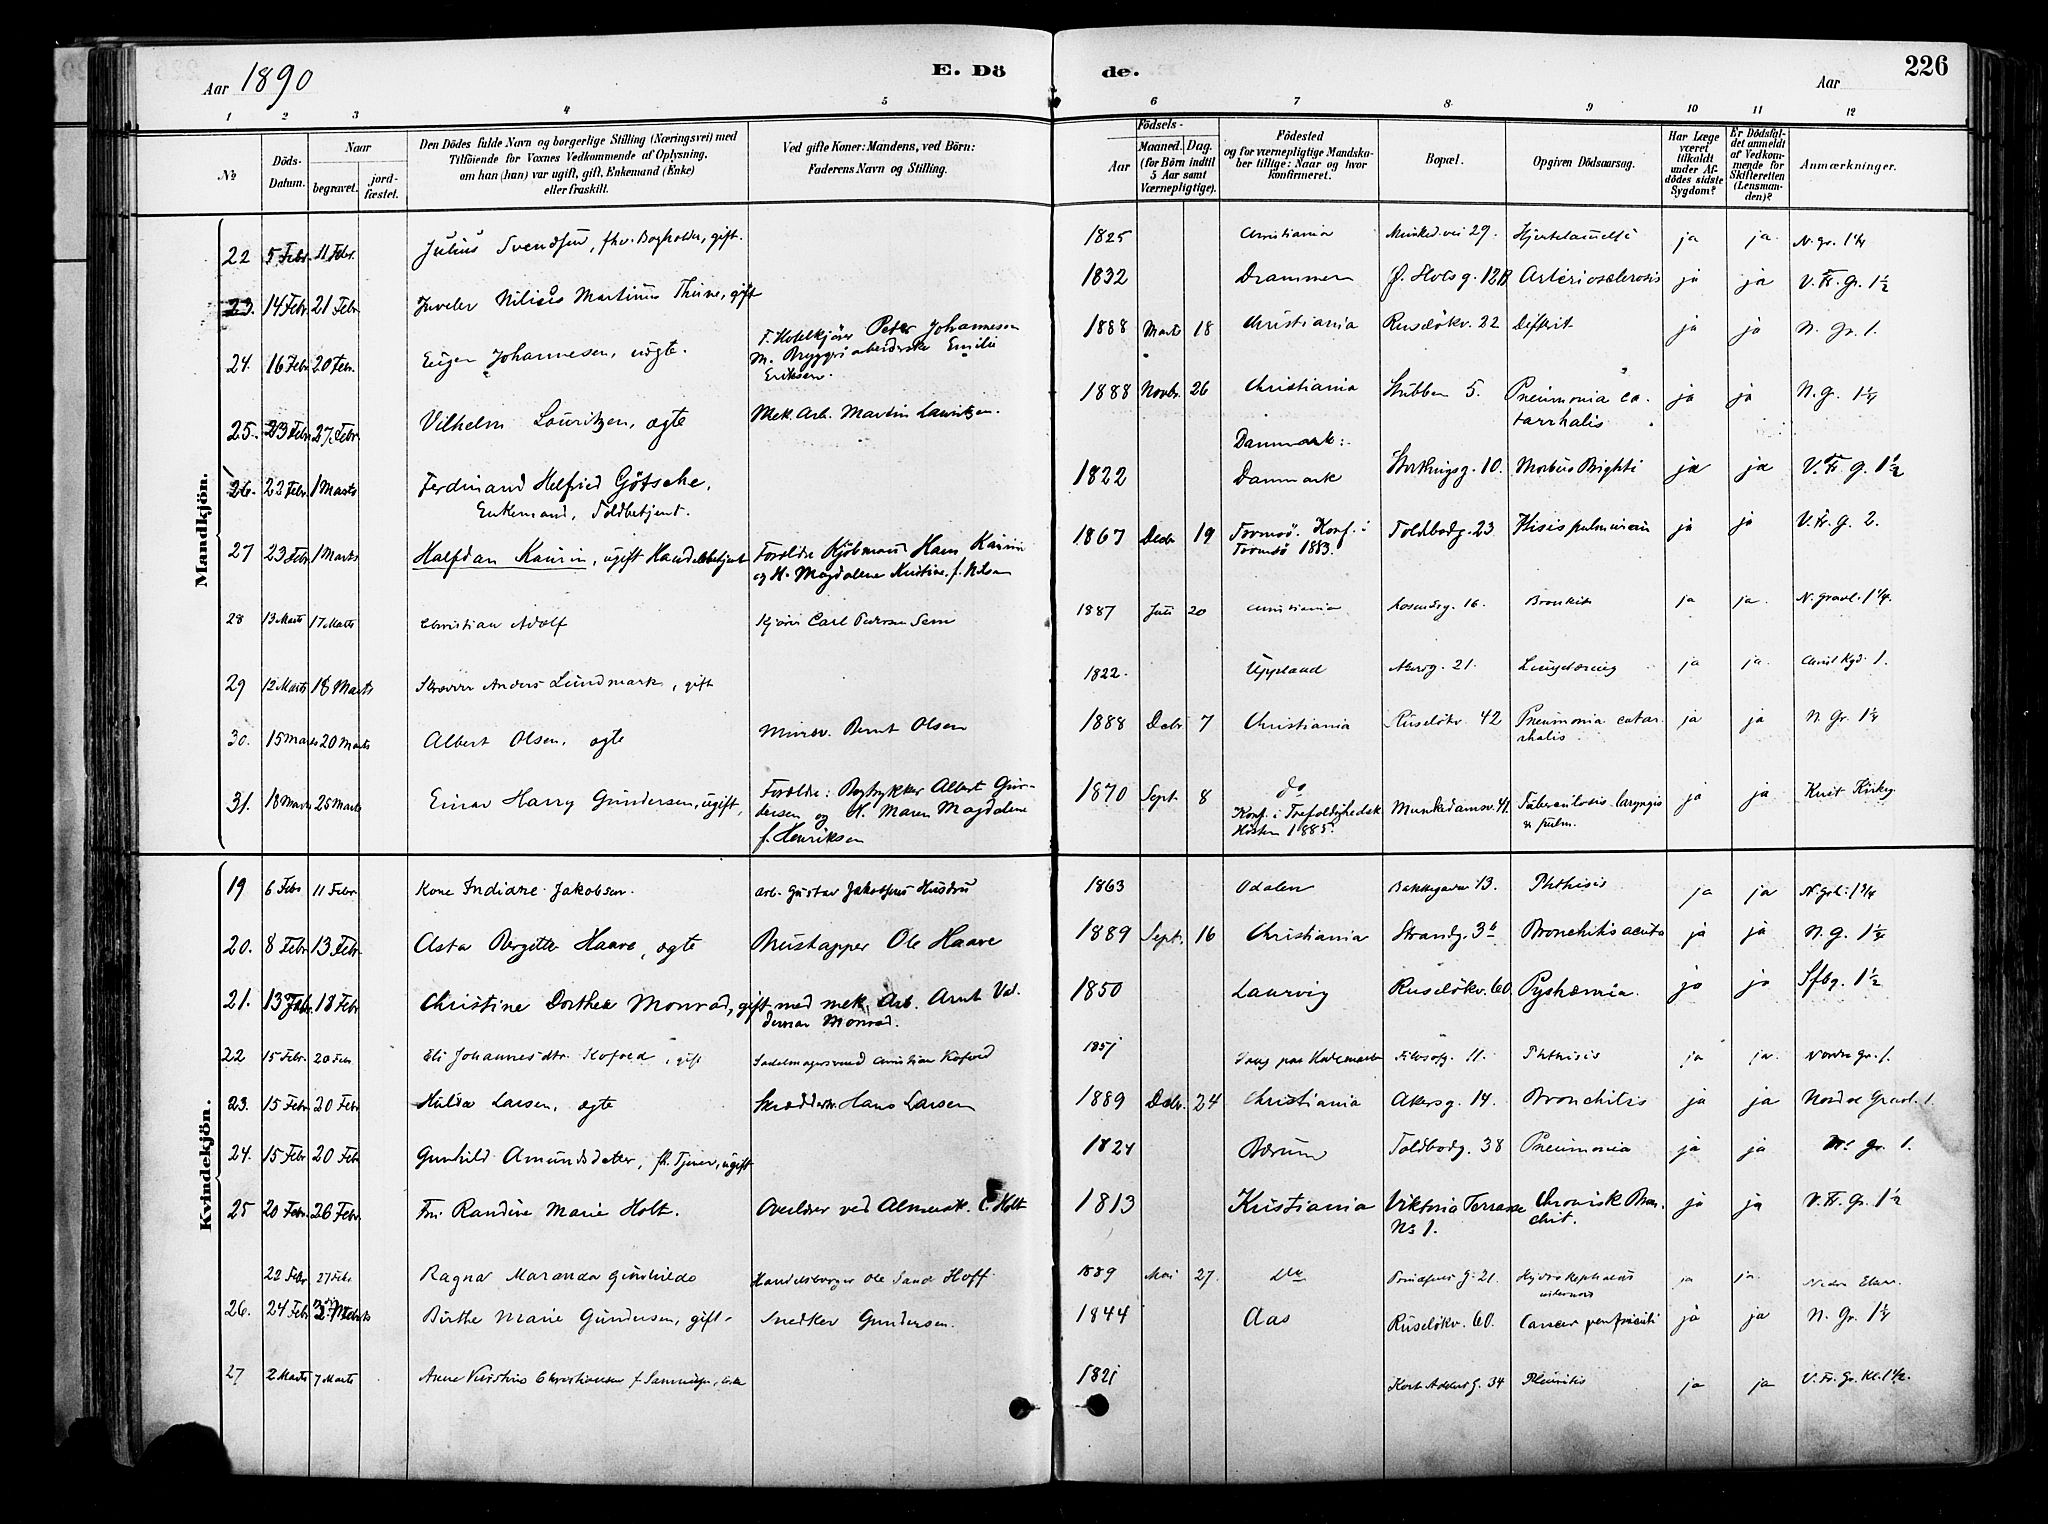 Aar 1890
E. Dö de.
Aar
226
1 2 3 4 5 6 7 8. 9 10 11 12
No
Döds-Datum.
Naar
begravet.
jord-fæstet.
Den Dödes fulde Navn og borgerlige Stilling (Næringsvei) med
Tilföiende for Voxnes Vedkommende af Oplysning,
om han (han) var ugift, gift, Enkemand (Enke)
eller fraskilt.
Ved gifte Koner: Mandens, ved Börn:
Faderens Navn og Stilling.
Födsels-
Aar
Maaned. Dag.
(for Börn indtil
5 Aar samt
Værnepligtige).
Födested
og for værnepligtige Mandska-
ber tillige: Naar og hvor
konfirmeret.
Bopæl.
Opgiven Dödsaarsag.
Har Læge
været
tilkaldt
under Af-
dödes sidste
Sygdom?
Er Dödsfal-
det anmeldt
af Vedkom-
mende for
Skifteretten
(Lensman-
den)?
Anmærkninger.
Mandkjön.
22 5 Febr. 11 Febr. Julius Svendsen, fhv. Bogholder, gift. 1825 Christiania Munked vei 29. Hjertelammelse ja ja. N. Gr. 1 1/4
23. 14 Febr 21 Febr. Juveler Nilius Martinus Thune, gift 1832 Drammen O. Holsg. 12B Arteriosclerosis ja ja V. Fr. Gr. 1 1/2
24. 16 Febr 20 Febr. Eugen Johannesen, uægte. F. Hotelkjører Peter Johannesen
M. Bryggeriarbeiderske Emilie
Eriksen. 1888 Marts 18 Christiania Ruseløkv. 22 Difterit ja ja N. Gr. 1.
25. 23 Febr 27. Febr. Vilhelm Lauritzen, ægte Mek. Arb. Martin Lauritzen. 1888 Novbr. 26 Christiania Stubben 5. Pneumonia ca-
tarrhalis ja ja N. G. 1 1/4
Danmark:
26. 22 Febr 1 Marts Ferdinand Helfried Götsche,
Enkemand, Toldbetjent. 1822 Danmark Storthingsg. 10. Morbus Brighti ja ja V. Fr. G. 1 1/2
27 23 Febr 1 Marts Halfdan Kaurin, ugift Handelsbetjent Forældre Kjøbmand Hans Kaurin
og H. Magdalene Kristine f. Nilsen 1867 Decbr 19 Tromsö. Konf. i
Tromsø 1883. Toldbodg. 23 Ftisis pulmonum ja ja V. Fr. G. 2.
28 13 Marts 17 Marts Christian Adolf Kjører Carl Pedersen Sem 1887 Juli 20 Christiania Rosendsg. 16. Bronkitis ja ja. N. Gravl. 1 1/4.
29 12 Marts 18 Marts Skræder Anders Lundmark, gift 1822. Uppland Akersg. 21. Lungetæring ja ja. Christ Kgd 1.
30. 15 Marts 20 Marts Albert Olsen, ægte Murer. Bernt Olsen 1888 Decbr 7 Christiania Ruseløkv. 42 Pneumonia catar-
rhalis ja ja N. Gr. 1 1/4
31. 18 Marts 25 Marts Einar Harry Gundersen, ugift, Forældre: Bogtrykker Albert Gun-
dersen og H. Maren Magdalene
f. Henriksen 1870 Sept 8 do
Konf. i Trefoldighedsk
Høsten 1885. Munkedamsv. 41. Tuberculosis laryngis
& pulm. ja ja Krist Kirkeg
Kvindekjön.
19 6 Febr 11 Febr. Kone Indiane Jakobsen. Arb. Gustav Jakobsens Hustru 1863 Odalen Bakkegaden 13. Phthisis ja ja N. Grl. 1 1/4
20. 8 Febr 13 Febr. Asta Bergitte Haave, ægte Brustapper Ole Haave 1889 Septr. 16 Christiania Strandg. 3b Bronchitis acuta ja ja N. G. 1 1/4
21. 13 Febr. 18 Febr Christine Dorthea Monrad, gift med mek. Arb. Arnt Val-
demar Monrad. 1850 Laurvig Ruseløkv. 60 Pyshæmia. ja ja Sfbg. 1 1/2
22 15 Febr. 20 Febr Eli Johannesdtr. Kofoed, gift Sadelmagersvend Christian Kofoed 1851 Vang paa Hedemarken Filosofg. 11. Phthisis ja ja. Nordre Gr. 1.
23. 15 Febr 20 Febr Hulda Larsen, ægte Skrædder Hans Larsen 1889 Decbr. 24 Christiania Akersg. 14. Bronchitis ja ja Nordre Gravl. 1.
24. 15 Febr 20 Febr Gunhild Amundsdatter, fh. Tjener, ugift 1824 Bærum Toldbodg. 38 Pneumonia ja ja N. Gr. 1.
25 20 Febr. 26 Febr. Fru Randine Marie Holt. Overlærer ved Almuesk. C. Holt 1813 Kristiania Viktoria Terrasse
No 1. Chronisk Bron-
chit. ja ja V. Fr. Gr. 1 1/2
22 Febr 27 Febr Ragna Maranda Gunhilda Handelsborger Ole Sande Hoff. 1889 Mai 27. do Prindsens G. 21 Hydrokephalus
internus ja ja.
26. 24 Febr Birthe Marie Gundersen, gift. Snedker Gundersen. 1844 Aas Ruseløkv. 60. Cancer ja ja N. Gr. 1 1/4
27 2 Marts 7 Marts Anne Kirstine Christiansen f. 1821 Kort Adelers G. 34 Pleuritis ja ja V. Fr. Gr. Kl. 1 1/2.